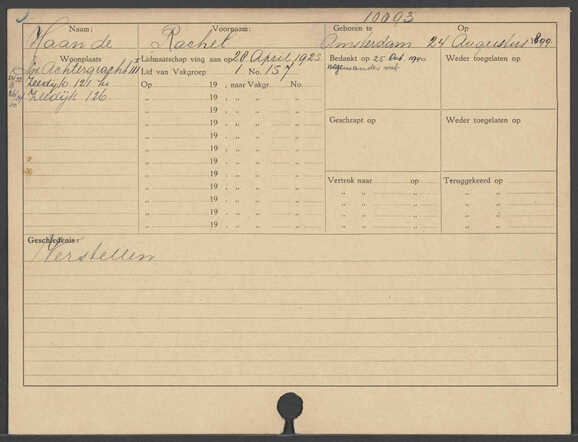 10093
Naam: Voornaam: Geboren te Op
Haan de Rachel Amsterdam 24 Augustus 1899
Woonplaats Lidmaatschap ving aan op 20 April 1923 Bedankt op 25 Oct. 1940 Weder toegelaten op
Achtergracht III Lid van Vakgroep 1 No. 157
Zeedijk 121 Op 19 , naar Vakgr. No.
Zeedijk 126 „ 19 , „ „ „
„ 19 , „ „ „
„ 19 , „ „ „ Geschrapt op Weder toegelaten op
„ 19 , „ „ „
„ 19 , „ „ „
„ 19 , „ „ „
„ 19 , „ „ „
„ 19 , „ „ „ Vertrok naar op Teruggekeerd op
„ 19 , „ „ „ „ „ „ „ „
„ 19 , „ „ „ „ „ „ „ „
„ 19 , „ „ „ „ „ „ „ „
Geschiedenis:
Verstellen